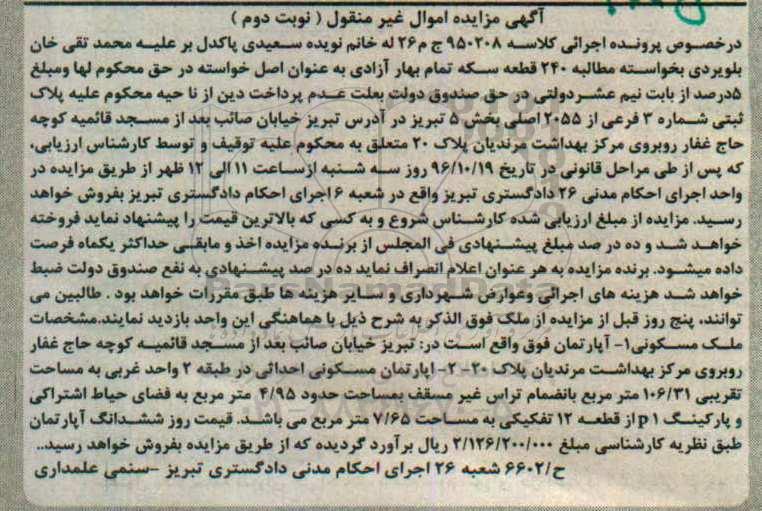 آگهی مزایده اموال غیر منقول ( نوبت دوم )
درخصوص پرونده اجرائی کلاسه ۹۵۰۲۰۸ ج م۲۶ له خانم نویده سعیدی پاکدل بر علیه محمد تقی خان
بلوپردی بخواسته مطالبه ۲۴۰ قطعه سکه تمام بهار آزادی به عنوان اصل خواسته در حق محکوم لها ومبلغ
۵درصد از بابت نیم عشردولتی در حق صندوق دولت بعلت عدم پرداخت دین از نا حیه محکوم علیه پلاک
ثبتی شماره ۳ فرعی از ۲۰۵۵ اصلی بخش ۵ تبریز در آدرس تبریز خیابان صائب بعد از مسجد قائمیه کوچه
حاج غفار روبروی مرکز بهداشت مرندیان پلاک ۲۰ متعلق به محکوم علیه توقیف و توسط کارشناس ارزیابی،
که پس از طی مراحل قانونی در تاریخ ۹۶/۱۰/۱۹ روز سه شنبه ازساعت ۱۱ الی ۱۲ ظهر از طریق مزایده در
واحد اجرای احکام مدنی ۲۶ دادگستری تبریز واقع در شعبه ۶ اجرای احکام دادگستری تبریز بفروش خواهد
رسید. مزایده از مبلغ ارزیابی شده کارشناس شروع و به کسی که بالاترین قیمت را پیشنهاد نماید فروخته
خواهد شد و ده در صد مبلغ پیشنهادی فی المجلس از برنده مزایده اخذ و مابقی حداکثر یکماه فرصت
داده میشود. برنده مزایده به هر عنوان اعلام انصراف نماید ده در صد پیشنهادی به نفع صندوق دولت ضبط
خواهد شد هزینه های اجرائی وعوارض شهرداری و سایر هزینه ها طبق مقررات خواهد بود . طالبین می
توانند، پنج روز قبل از مزایده از ملک فوق الذکر به شرح ذیل با هماهنگی این واحد بازدید نمایند.مشخصات
ملک مسکونی۱- آپارتمان فوق واقع است در: تبریز خیابان صائب بعد از مسجد قائمیه کوچه حاج غفار
روبروی مرکز بهداشت مرندیان پلاک ۲۰- ۲- اپارتمان مسکونی احداثی در طبقه ۲ واحد غربی به مساحت
تقریبی ۱۰۶/۳۱ متر مربع بانضمام تراس غیر مسقف بمساحت حدود ۴/۹۵ متر مربع به فضای حیاط اشتراکی
و پارکینگ p۱ از قطعه ۱۲ تفکیکی به مساحت ۷/۶۵ متر مربع می باشد. قیمت روز ششدانگ آپارتمان
طبق نظریه کارشناسی مبلغ ۲/۱۲۶/۲۰۰/۰۰۰ ریال برآورد گردیده که از طریق مزایده بفروش خواهد رسید..
ح/۶۶۰۲ شعبه ۲۶ اجرای احکام مدنی دادگستری تبریز -سنمی علمداری
ParsNamadData